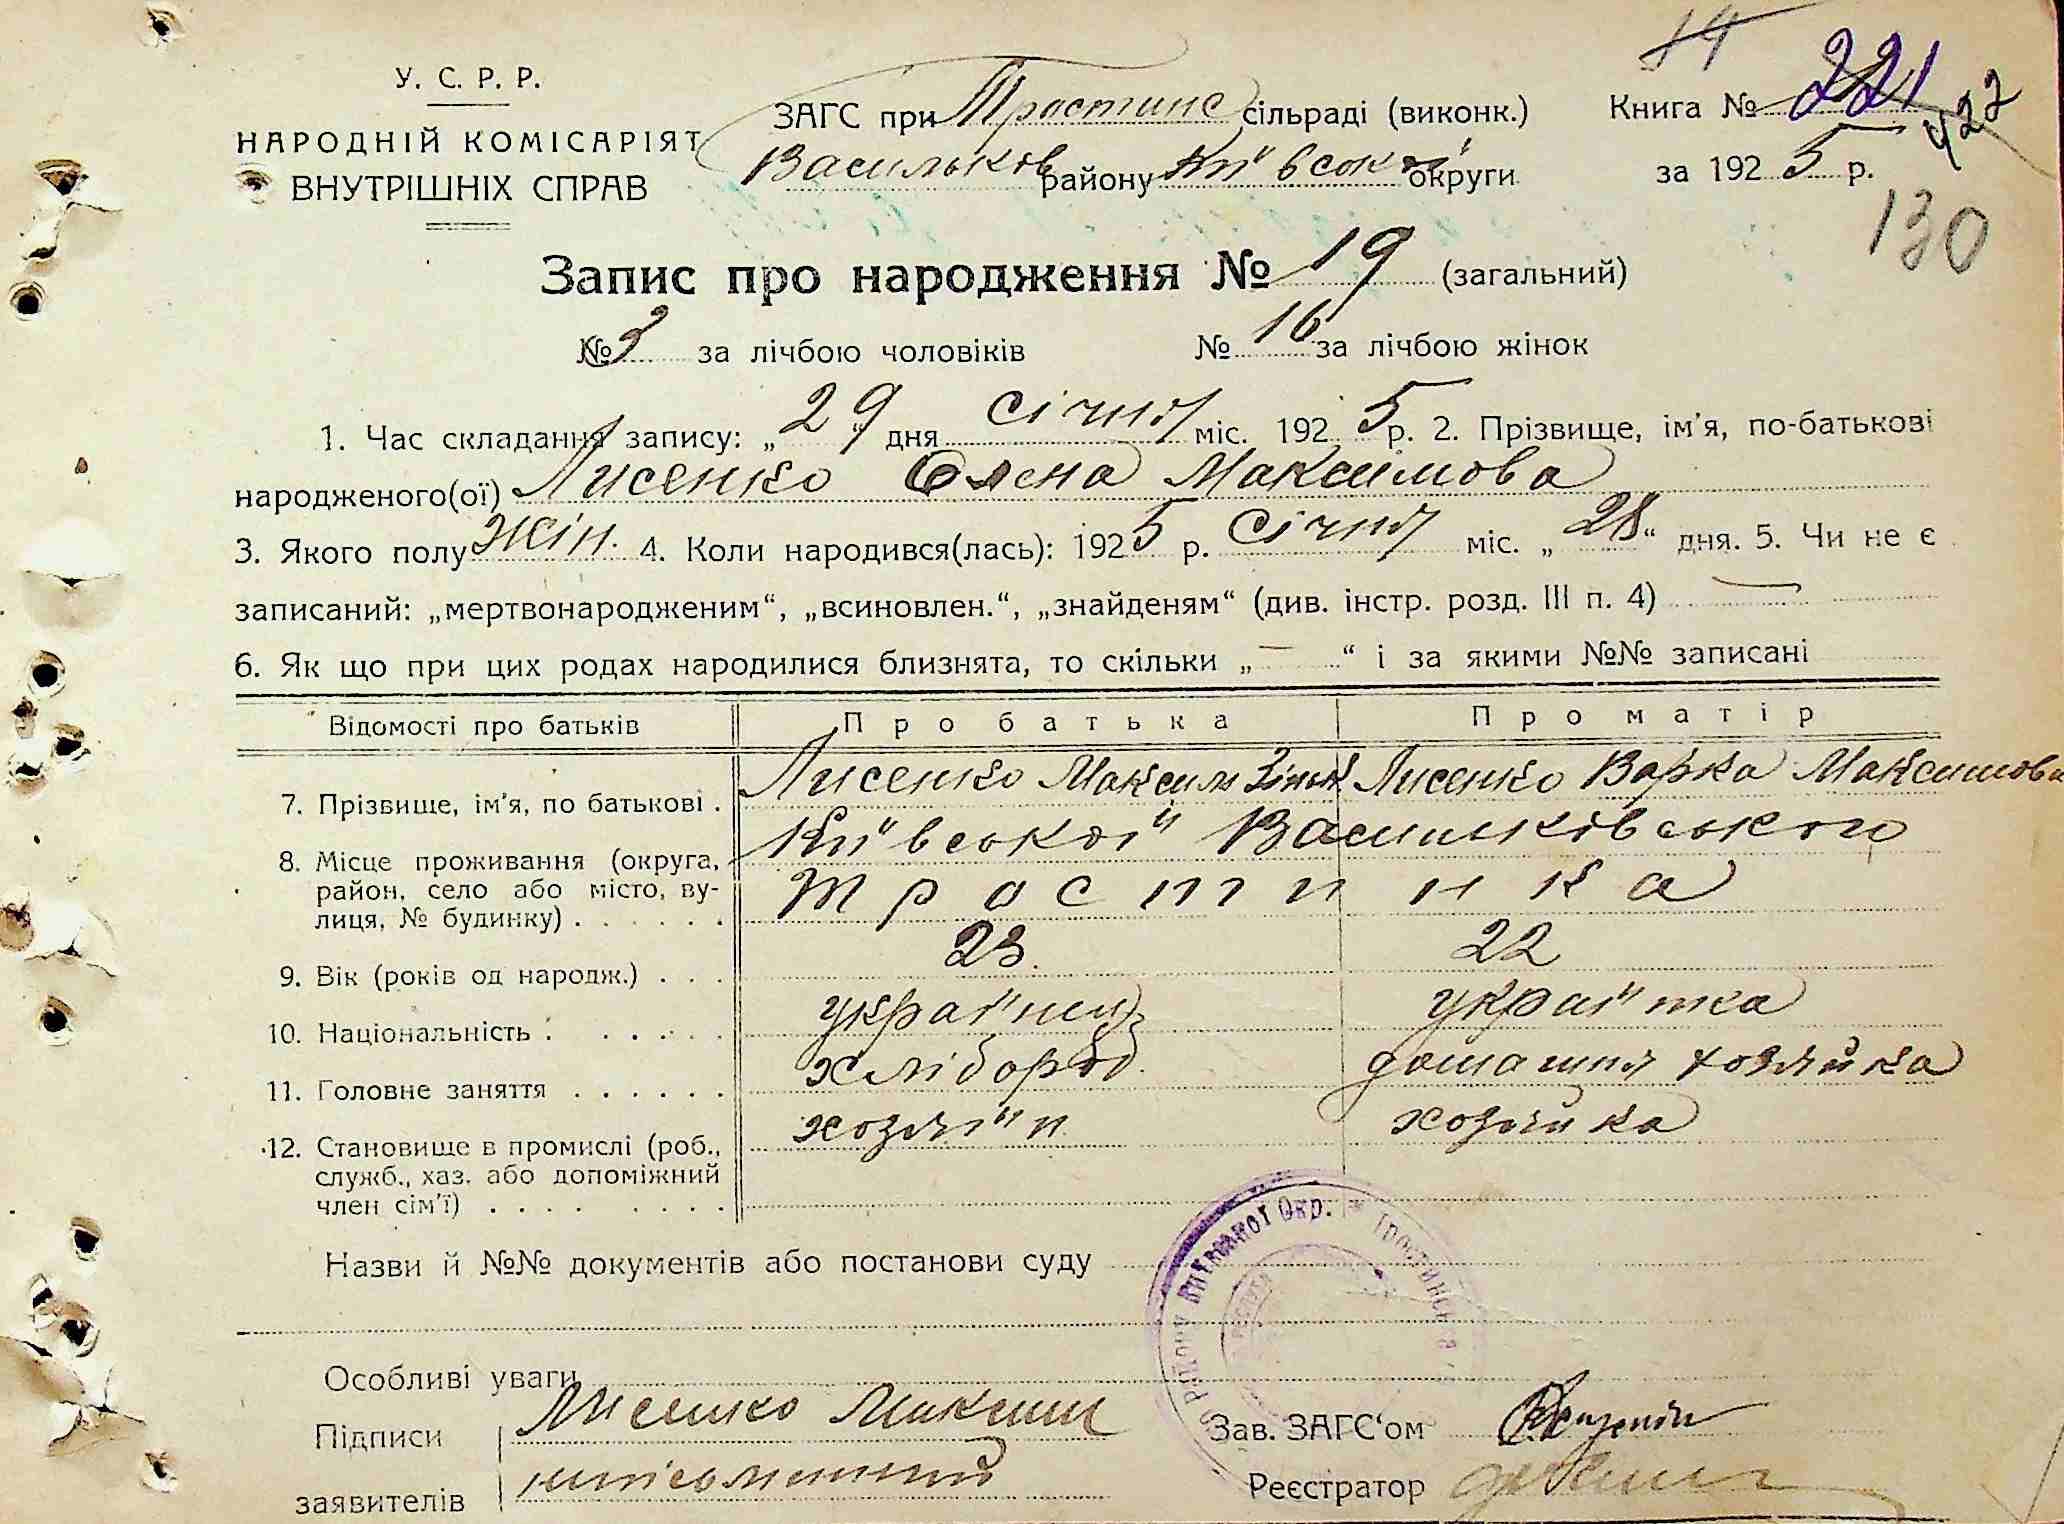 14
У. С. Р. Р.
НАРОДНІЙ КОМІСАРІЯТ
ВНУТРІШНІХ СПРАВ
ЗАГС при Тростинс сільраді (виконк.)
Васильков району Київської округи
Книга № 221
422
за 1925 р.
130
Запис про народження № 19 (загальний)
№ 3 за лічбою чоловіків № 16 за лічбою жінок
1. Час складання запису: „29“ дня січня міс. 1925 р. 2. Прізвище, ім'я, по-батькові
народженого(ої) Лисенко Олена Максимова
3. Якого полу жін. 4. Коли народився(лась): 1925 р. Січня міс. „28“ дня. 5. Чи не є
записаний: „мертвонародженим“, „всиновлен.“, „знайденям“ (див. інстр. розд. III п. 4) —
6. Як що при цих родах народилися близнята, то скільки „—“ і за якими №№ записані
Відомості про батьків Про батька Про матір
7. Прізвище, ім'я, по батькові . Лисенко Максим Зіньк Лисенко Варка Максимова
8. Місце проживання (округа, район, село або місто, вулиця, № будинку) . . . . . . Київської Васильківського
Тростинка
9. Вік (років од народж.) . . . 23. 22
10. Національність . . . . . . українец українка
11. Головне заняття . . . . . . хлібороб. домашня хозяйка
12. Становище в промислі (роб., служб., хаз. або допоміжний член сім'ї) . . . . . . . . хозяїн хозяйка
Назви й №№ документів або постанови суду
Району Київської Окр. Тростинськ
Особливі уваги
Підписи Лисенко Максим
заявителів
Зав. ЗАГС'ом
Реєстратор